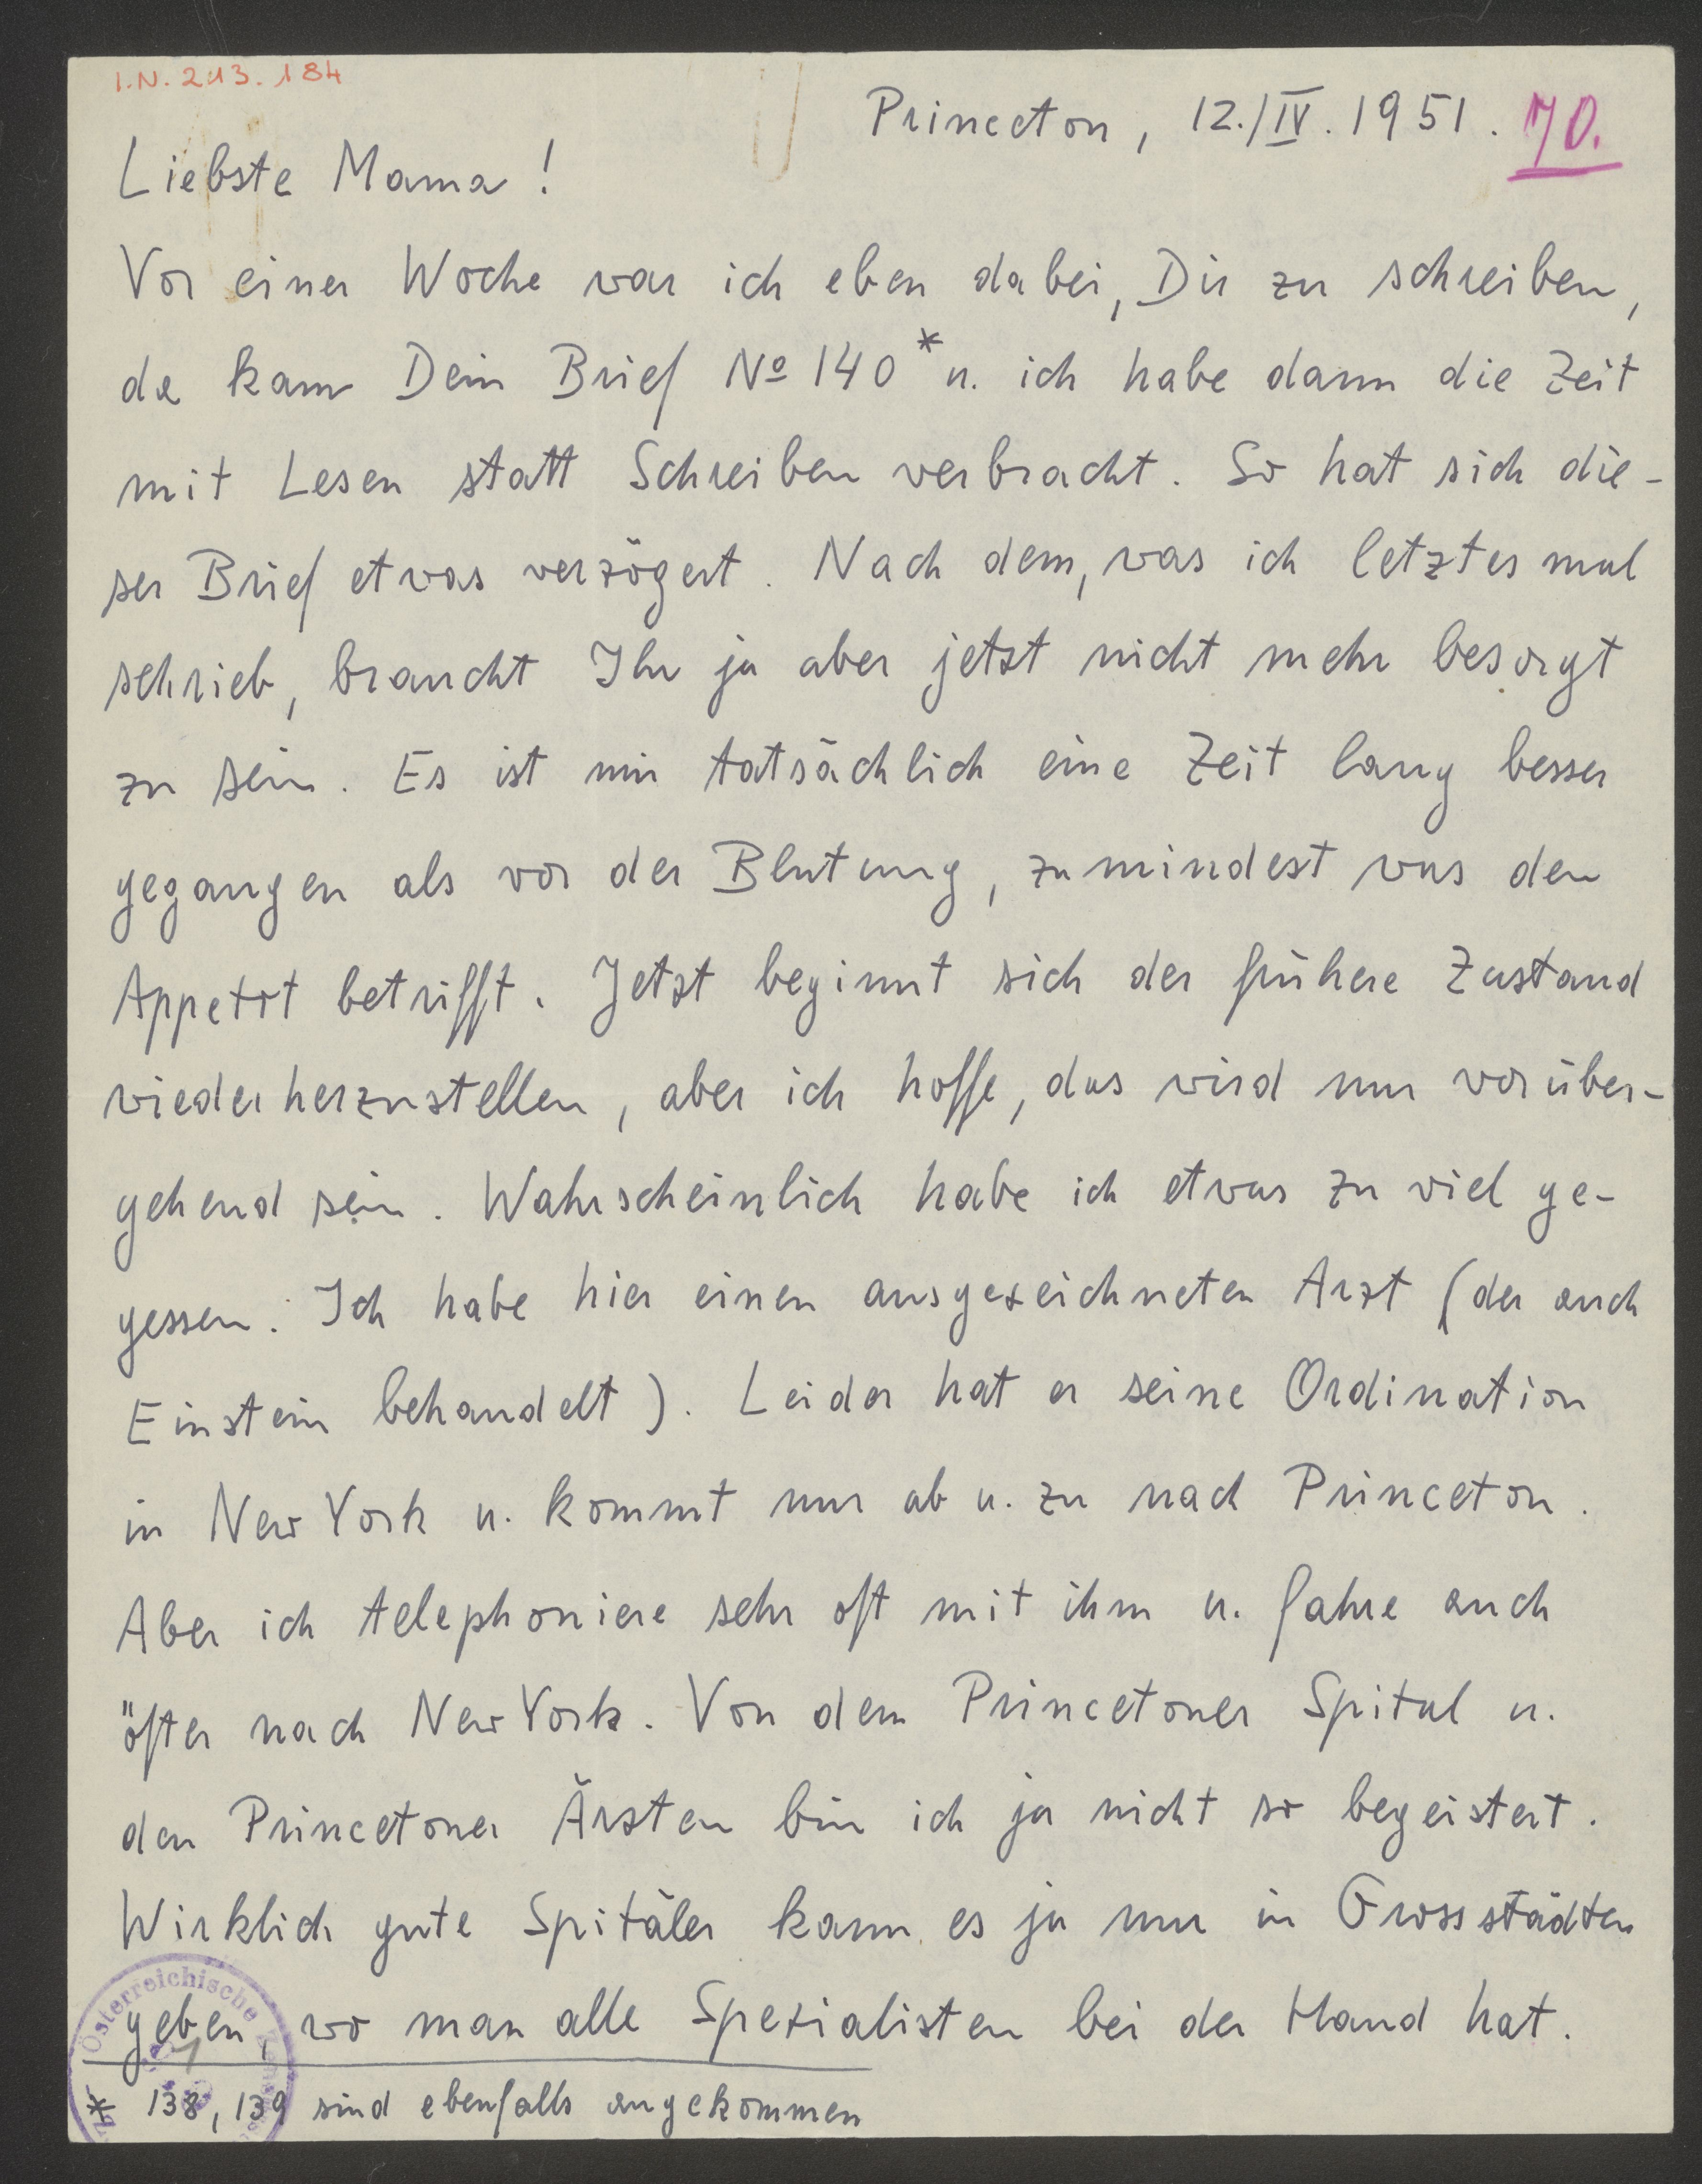 I.N. 213.184
Princeton, 12./IV. 1951. 70.
Liebste Mama!
Vor einer Woche war ich eben dabei, Dir zu schreiben,
da kam Dein Brief Nº 140* u. ich habe dann die Zeit
mit Lesen statt Schreiben verbracht. So hat sich die-
ser Brief etwas verzögert. Nach dem, was ich letztes mal
schrieb, braucht Ihr ja aber jetzt nicht mehr besorgt
zu sein. Es ist mir tatsächlich eine Zeit lang besser
gegangen als vor der Blutung, zumindest was den
Appetit betrifft. Jetzt beginnt sich der frühere Zustand
wiederherzustellen, aber ich hoffe, das wird nur vorüber-
gehend sein. Wahrscheinlich habe ich etwas zu viel ge-
gessen. Ich habe hier einen ausgezeichneten Arzt (der auch
Einstein behandelt). Leider hat er seine Ordination
in New York u. kommt nur ab u. zu nach Princeton.
Aber ich telephoniere sehr oft mit ihm u. fahre auch
öfter nach New York. Von dem Princetoner Spital u.
den Princetoner Ärzten bin ich ja nicht so begeistert.
Wirklich gute Spitäler kann es ja nur in Grossstädten
geben, wo man alle Spezialisten bei der Hand hat.
* 138, 139 sind ebenfalls angekommen
Österreichische